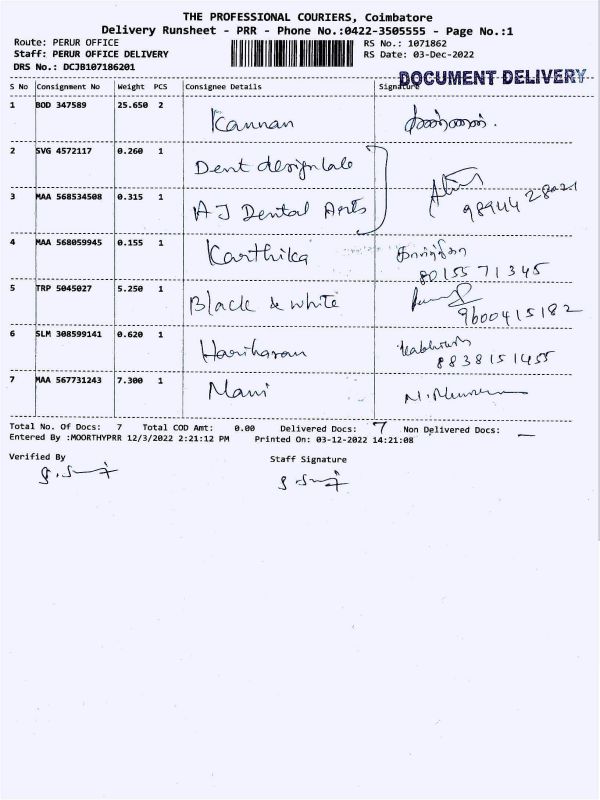 THE PROFESSIONAL COURIERS, Coimbatore
Delivery Runsheet - PRR - Phone No.:0422-3505555 - Page No.:1
Route: PERUR OFFICE RS No.: 1071862
Staff: PERUR OFFICE DELIVERY RS Date: 03-Dec-2022
DRS No.: DCJB107186201
DOCUMENT DELIVERY
S No Consignment No Weight PCS Consignee Details Signature
1 BOD 347589 25.650 2 Kannan
2 SVG 4572117 0.260 1 Dent designlab
3 MAA 568534508 0.315 1 AJ Dental Arts
4 MAA 568059945 0.155 1 Karthika கார்த்திகா
8015571345
5 TRP 5045027 5.250 1 Black & white
9600415182
6 SLM 308599141 0.620 1 Hariharan
8838151455
7 MAA 567731243 7.300 1 Mani
Total No. Of Docs: 7 Total COD Amt: 0.00 Delivered Docs: 7 Non Delivered Docs: —
Entered By :MOORTHYPRR 12/3/2022 2:21:12 PM Printed On: 03-12-2022 14:21:08
Verified By Staff Signature